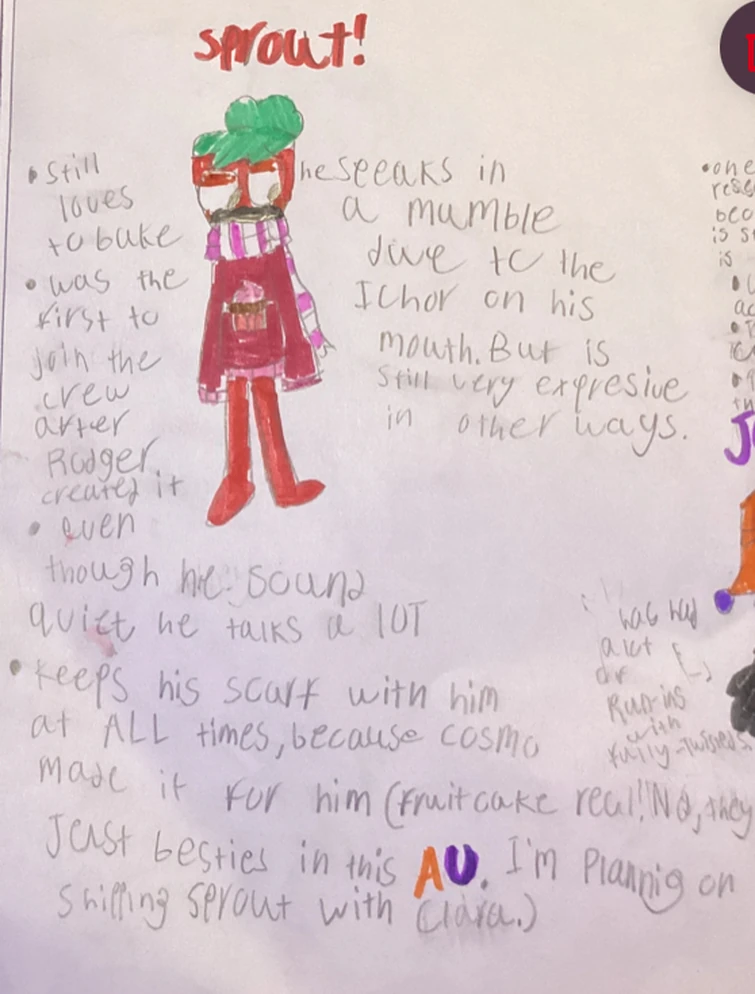 sprout!
• Still
loves
to bake
• was the
first to
join the
crew
after
Rodger
created it
• even
though he sound
quiet he talks a lOT
• Keeps his scarf with him
at ALL times, because cosmo
made it for him (fruitcake real!! No, they
Just besties in this AU. I'm Plannig on
shipping sprout with Clara.)
he speaks in
a mumble
due to the
Ichor on his
mouth. But is
still very expresive
in other ways.
• one
rese
beco
is
is
has had
a lot
of
Run-ins
with
fully-Twisteds
J